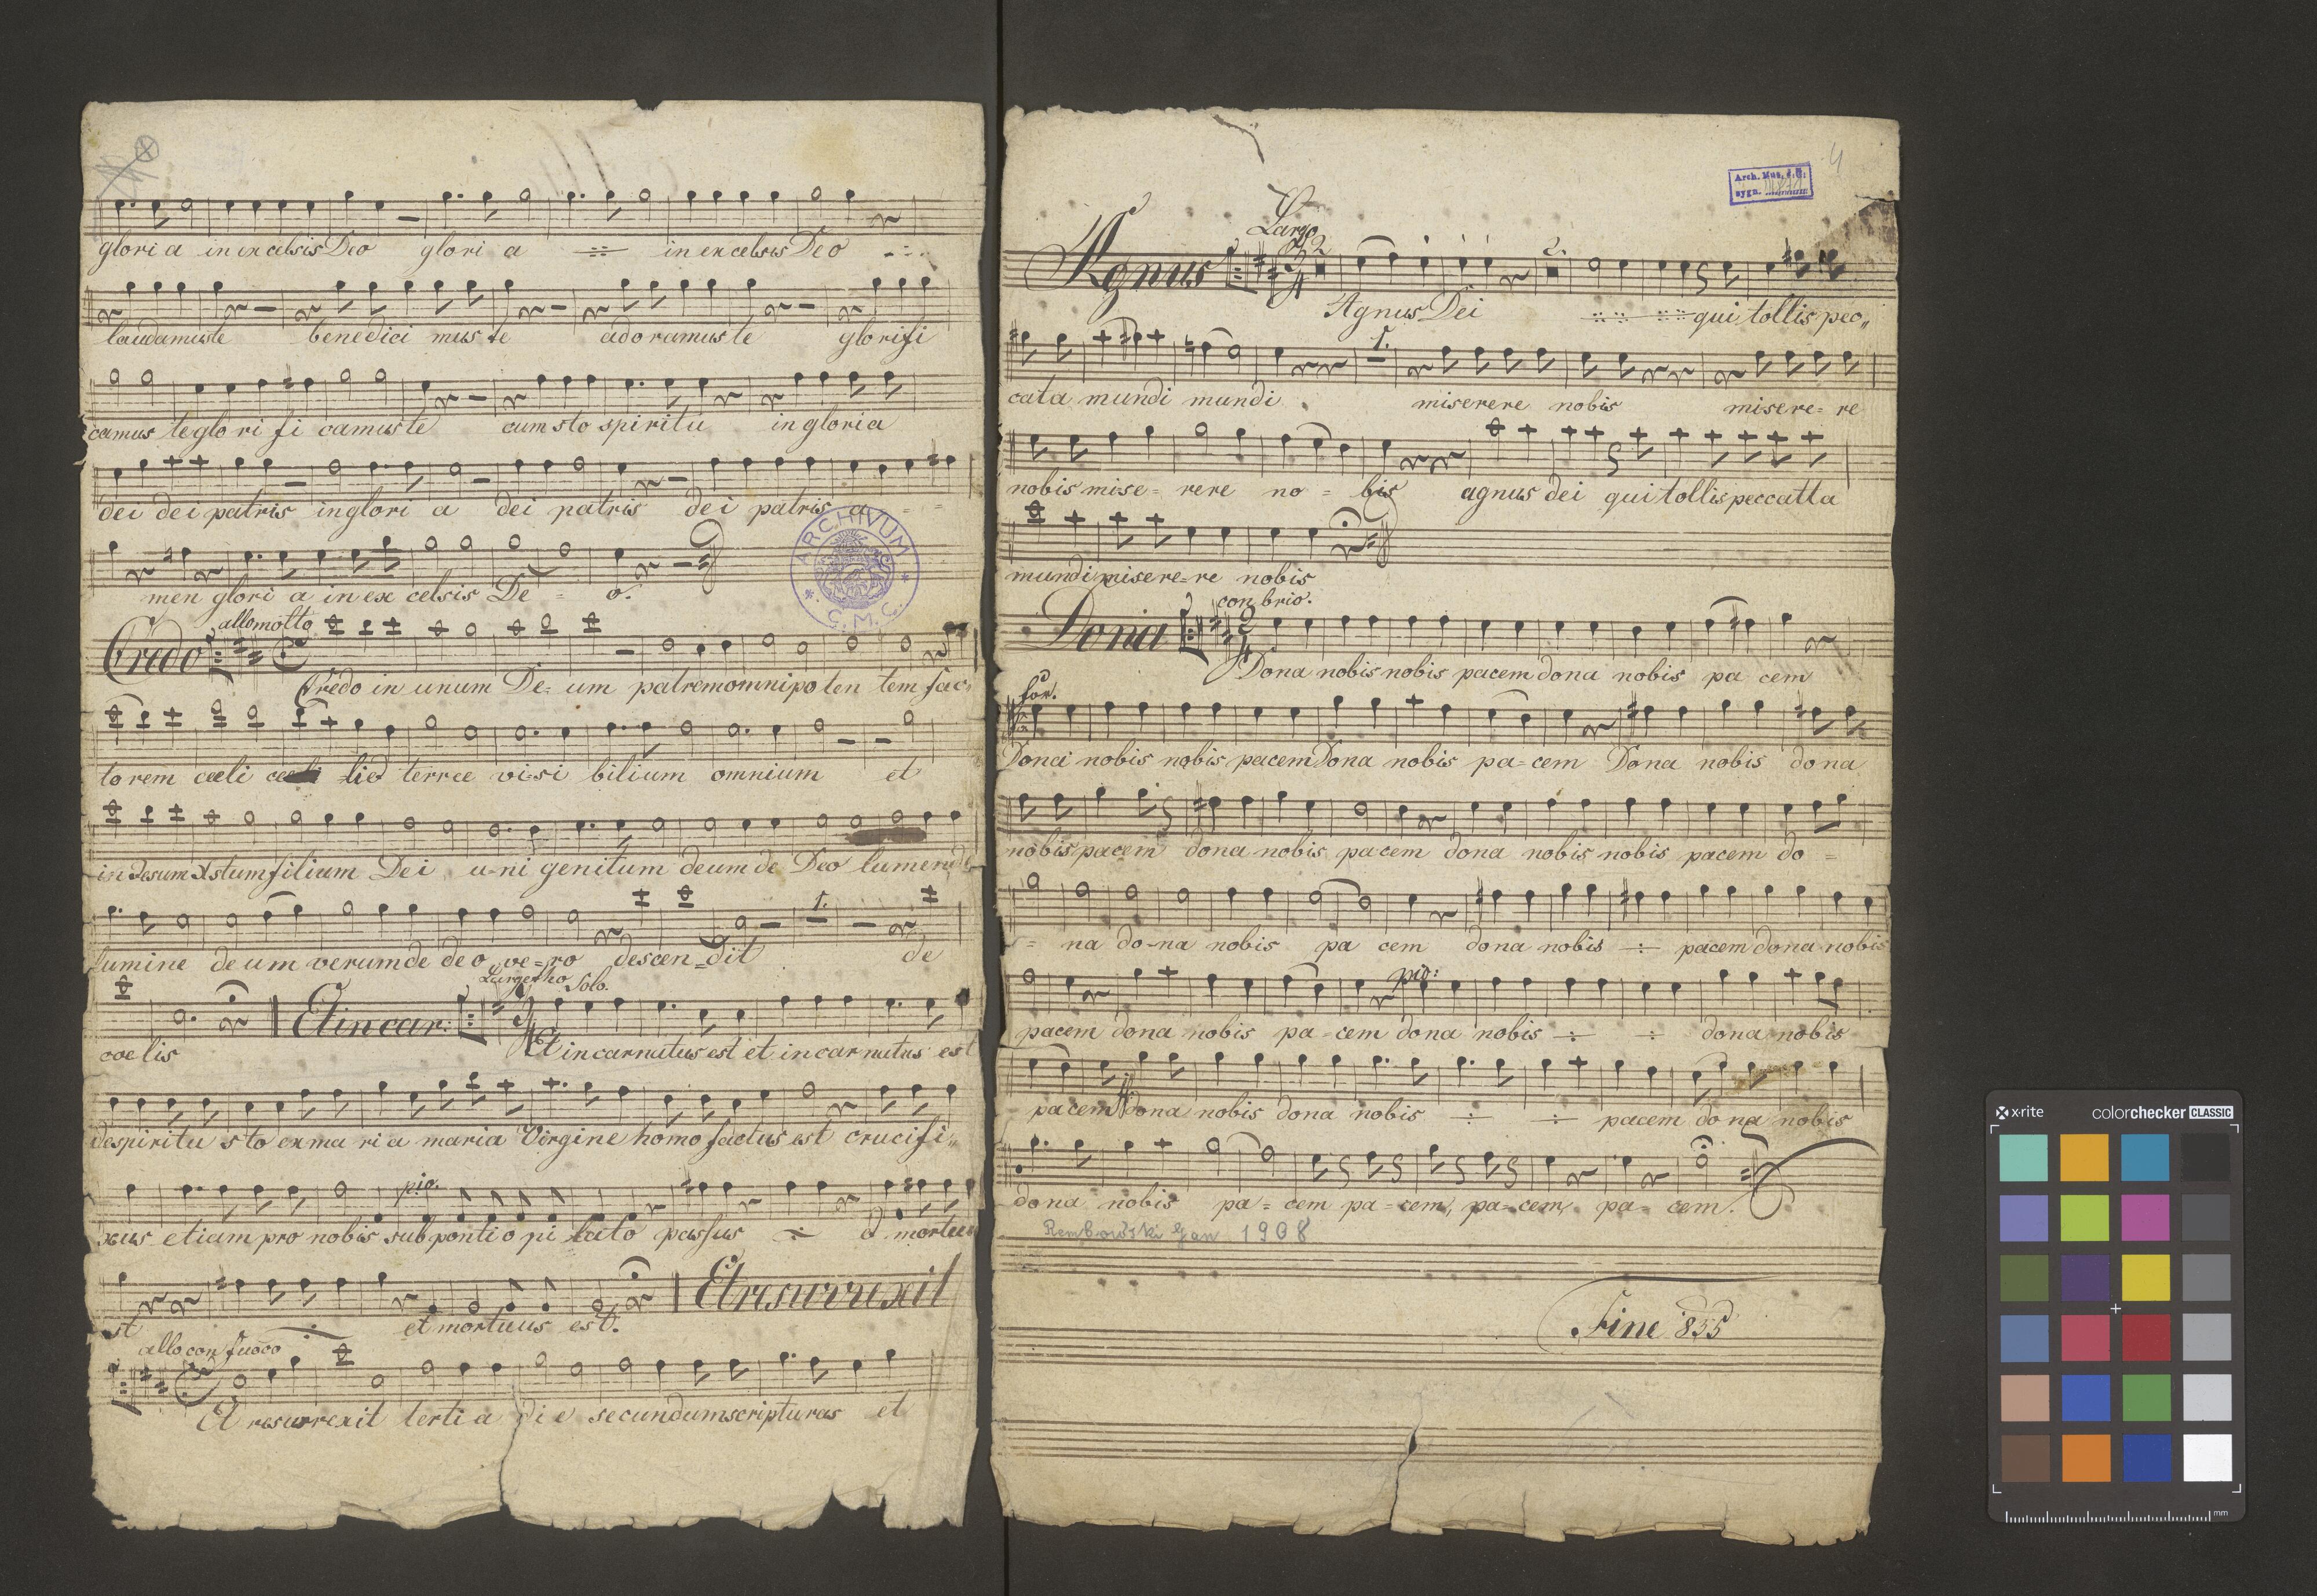 gloria in excelsis Deo gloria in excelsis Deo
laudamus te benedici mus te adoramus te glorifi
camus te glo ri fi camus te cum sto spiritu in gloria
dei dei patris in glori a dei patris dei patris a
men glori a in ex celsis De = o.
Credo allo molto
Credo in unum De= um patrem omnipo ten tem fac
torem cœli et terræ vi=si bilium omnium et
in Jesum Xstum filium Dei u=ni genitum deum de Deo lumen de
lumine de um verum de deo ve=ro descen=dit de
Larghetto Solo.
coelis Et in car: Et incarnatus est et incarnatus est
de spiritu sto ex ma ri a maria Virgine homo factus est crucifi=
pio.
xus etiam pro nobis sub pontio pi lato passus et mortuus
st et mortuus est. Et resurrexit
allo con fuoco
Et resurrexit terti a di e secundum scripturas et
ARCHIVUM C.M.C.
4
Arch. Mus.
sygn.
Largo
Agnus Agnus Dei qui tollis pec=
cata mundi mundi 1. miserere nobis misere= re
nobis mise= rere no = bis agnus dei qui tollis peccatta
mundi misere=re nobis
con brio.
Dona Dona nobis nobis pacem dona nobis pa cem
for.
Dona nobis nobis pacem Dona nobis pa=cem Dona nobis dona
nobis pacem dona nobis pacem dona nobis nobis pacem do =
= na do=na nobis pa cem dona nobis pacem dona nobis
pio:
pacem dona nobis pa=cem dona nobis dona nobis
pacem dona nobis dona nobis pacem dona nobis
dona nobis pa = cem pa=cem, pa=cem pa= cem.
Rembowski Jan 1908
Fine 855
x·rite colorchecker CLASSIC
mm